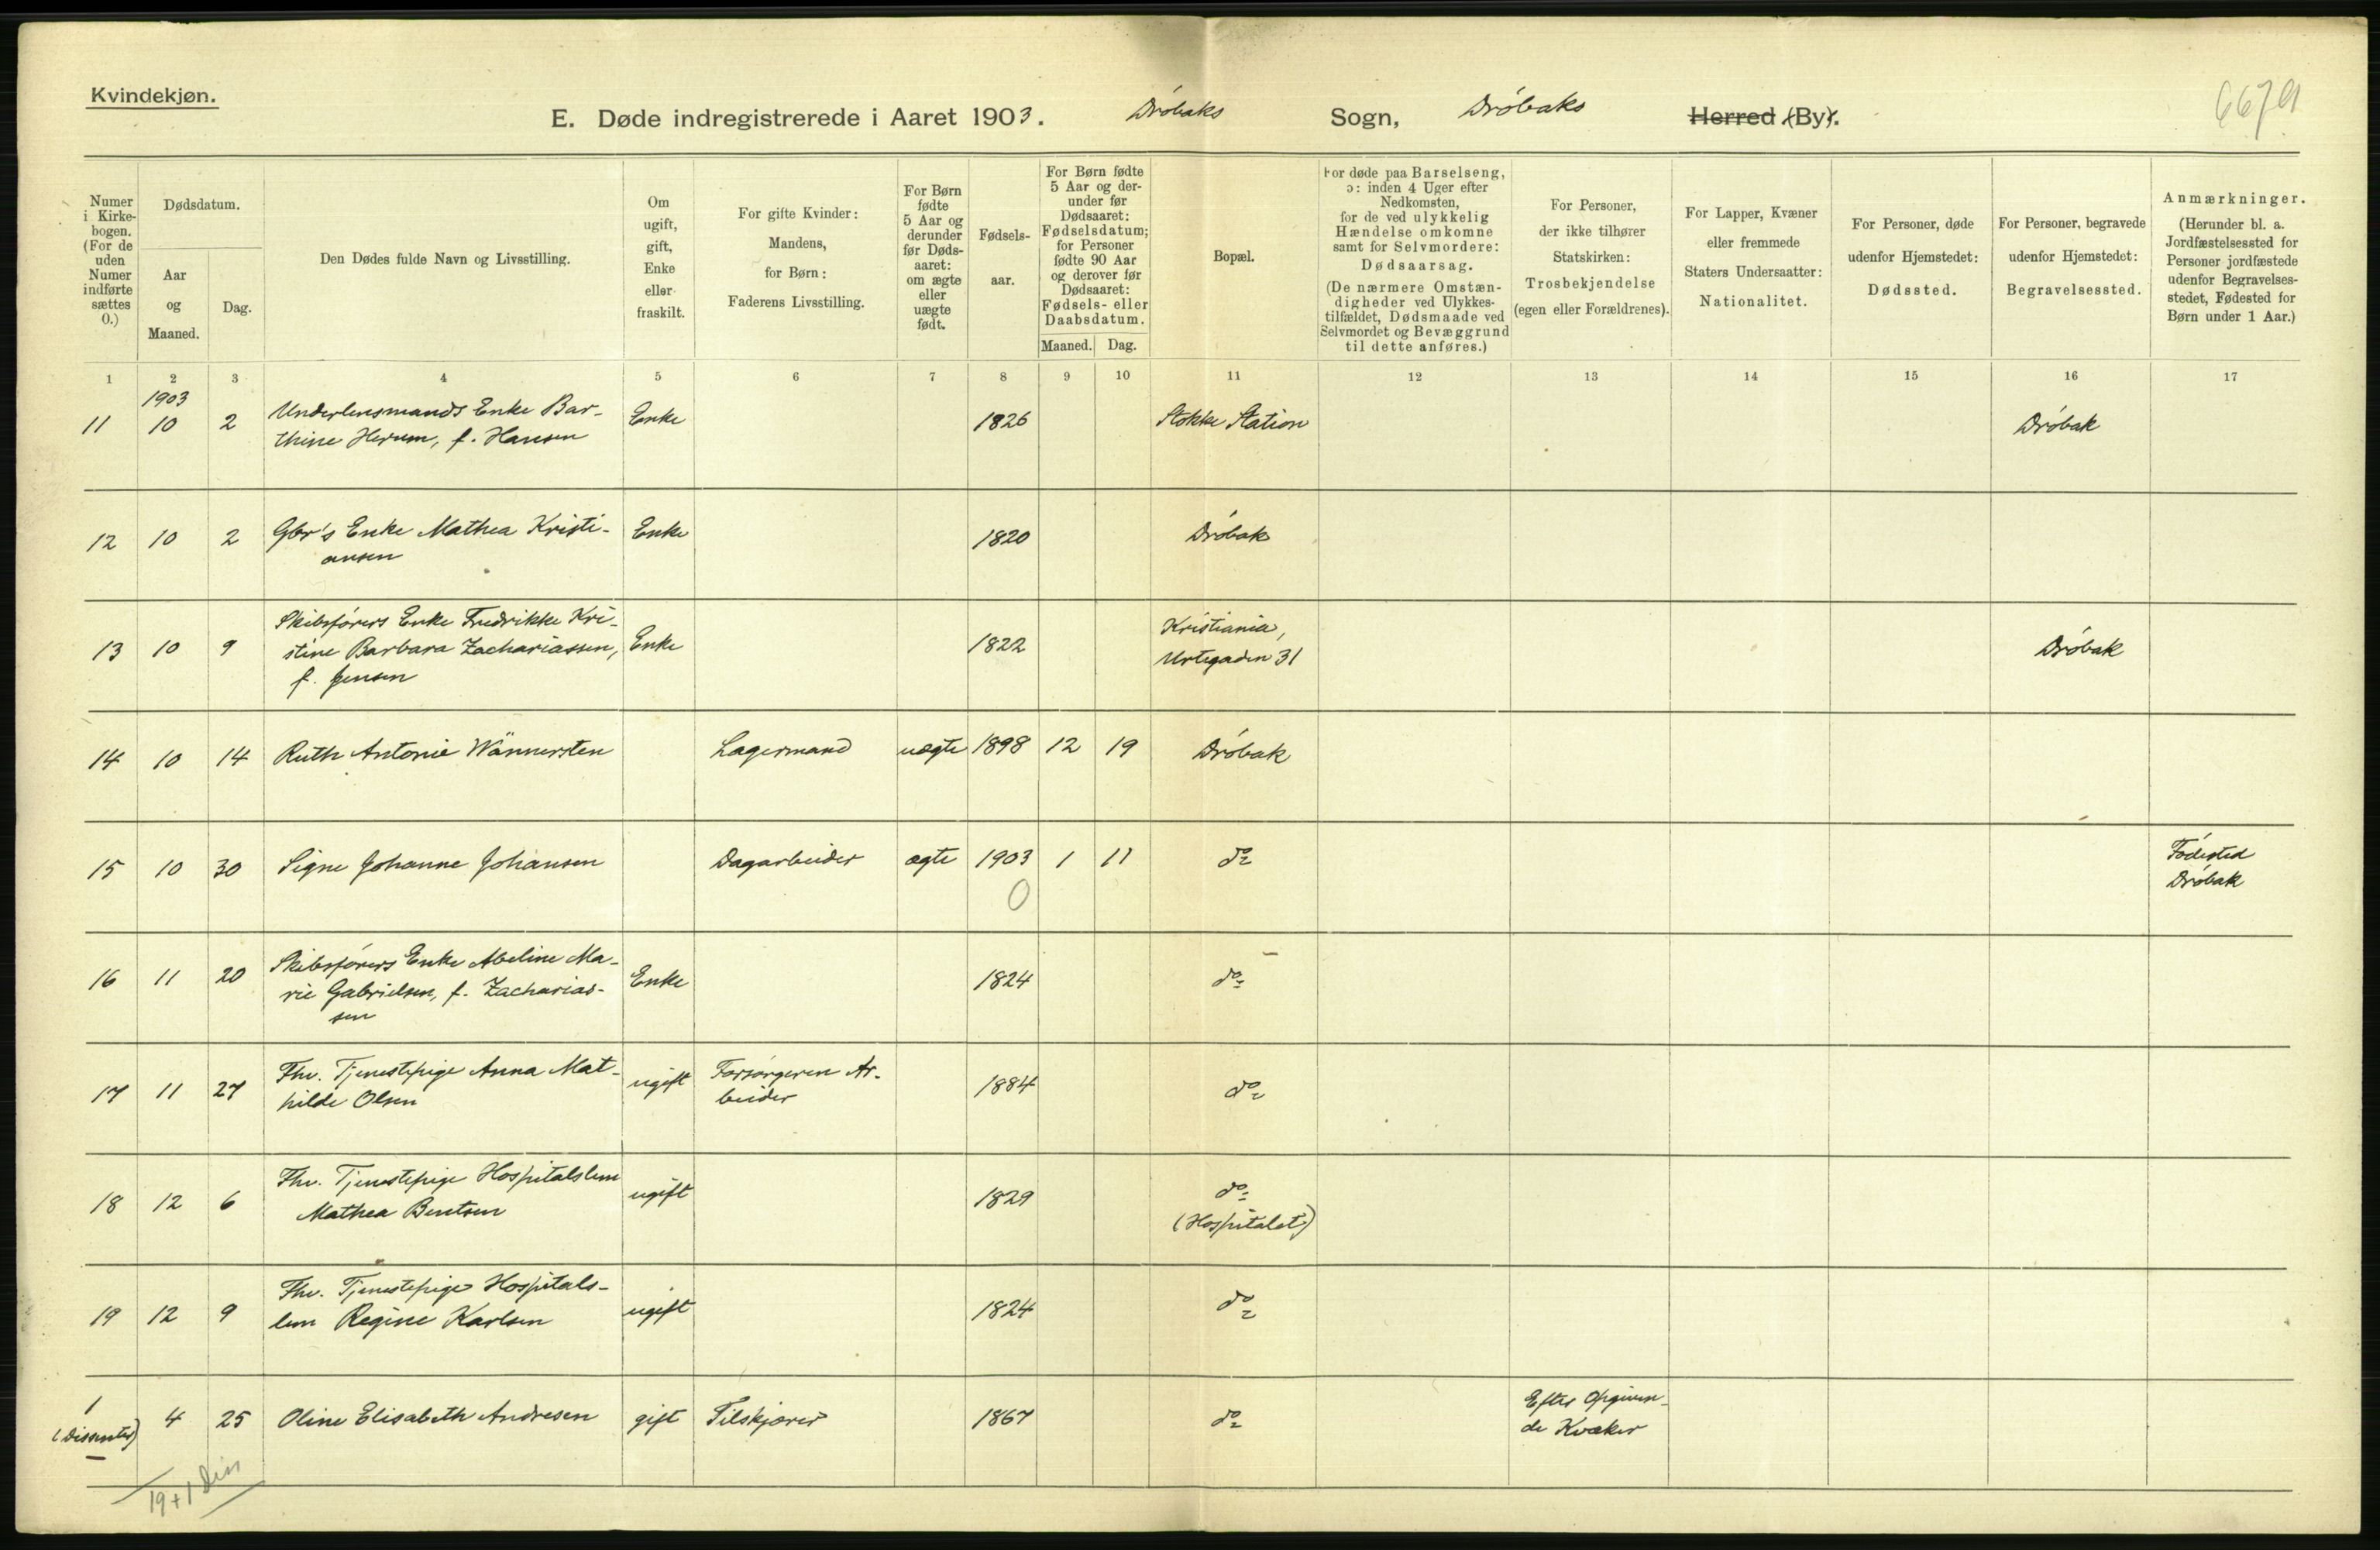 Kvindekjøn.
E. Døde indregistrerede i Aaret 1903. Drøbaks Sogn, Drøbaks Herred (By).
Numer i Kirkebogen. (For de uden Numer indførte sættes 0.)
Dødsdatum.
Aar og Maaned.
Dag.
Den Dødes fulde Navn og Livsstilling.
Om ugift, gift, Enke eller fraskilt.
For gifte Kvinder: Mandens, for Børn: Faderens Livsstilling.
For Børn fødte 5 Aar og derunder før Dødsaaret: om ægte eller uægte født.
Fødselsaar.
For Børn fødte 5 Aar og derunder før Dødsaaret: Fødselsdatum; for Personer fødte 90 Aar og derover før Dødsaaret: Fødsels- eller Daabsdatum.
Maaned. Dag.
Bopæl.
For døde paa Barselseng, ɔ: inden 4 Uger efter Nedkomsten, for de ved ulykkelig Hændelse omkomne samt for Selvmordere: Dødsaarsag. (De nærmere Omstændigheder ved Ulykkestilfældet, Dødsmaade ved Selvmordet og Bevæggrund til dette anføres.)
For Personer, der ikke tilhører Statskirken: Trosbekjendelse (egen eller Forældrenes).
For Lapper, Kvæner eller fremmede Staters Undersaatter: Nationalitet.
For Personer, døde udenfor Hjemstedet: Dødssted.
For Personer, begravede udenfor Hjemstedet: Begravelsessted.
Anmærkninger. (Herunder bl. a. Jordfæstelsessted for Personer jordfæstede udenfor Begravelsesstedet, Fødested for Børn under 1 Aar.)
1 2 3 4 5 6 7 8 9 10 11 12 13 14 15 16 17
1903
11 10 2 Underlensmands Enke Bar-
thine Herum, f. Hansen Enke 1826 Stokke Station Drøbak
12 10 2 Gbr's Enke Mathea Kristi-
ansen Enke 1820 Drøbak
13 10 9 Skibsførers Enke Fredrikke Kri-
stine Barbara Zachariassen, Enke 1822 Kristiania, Drøbak
f. Jensen Urtegaden 31
14 10 14 Ruth Antonie Wännersten Lagermand uægte 1898 12 19 Drøbak
15 10 30 Signe Johanne Johansen Dagarbeider ægte 1903 1 11 do Fødested
0 Drøbak
16 11 20 Skibsførers Enke Abeline Ma-
rie Gabrielsen, f. Zacharias- Enke 1824 do
sen
17 11 27 Fhv. Tjenestepige Anna Mat- ugift Forsørgeren Ar- 1884 do
hilde Olsen beider
18 12 6 Fhv. Tjenestepige Hospitalslem ugift 1829 do
Mathea Bentsen (Hospitalet)
19 12 9 Fhv. Tjenestepige Hospitals-
lem Regine Karlsen ugift 1824 do
1 4 25 Oline Elisabeth Andresen gift Tilskjærer 1867 do Efter Opgiven-
(Dissenter) de Kvæker
19+1 Diss